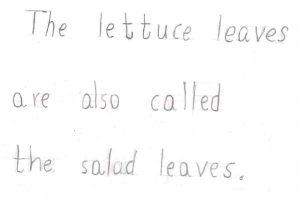 The lettuce leaves
are also called
the salad leaves.